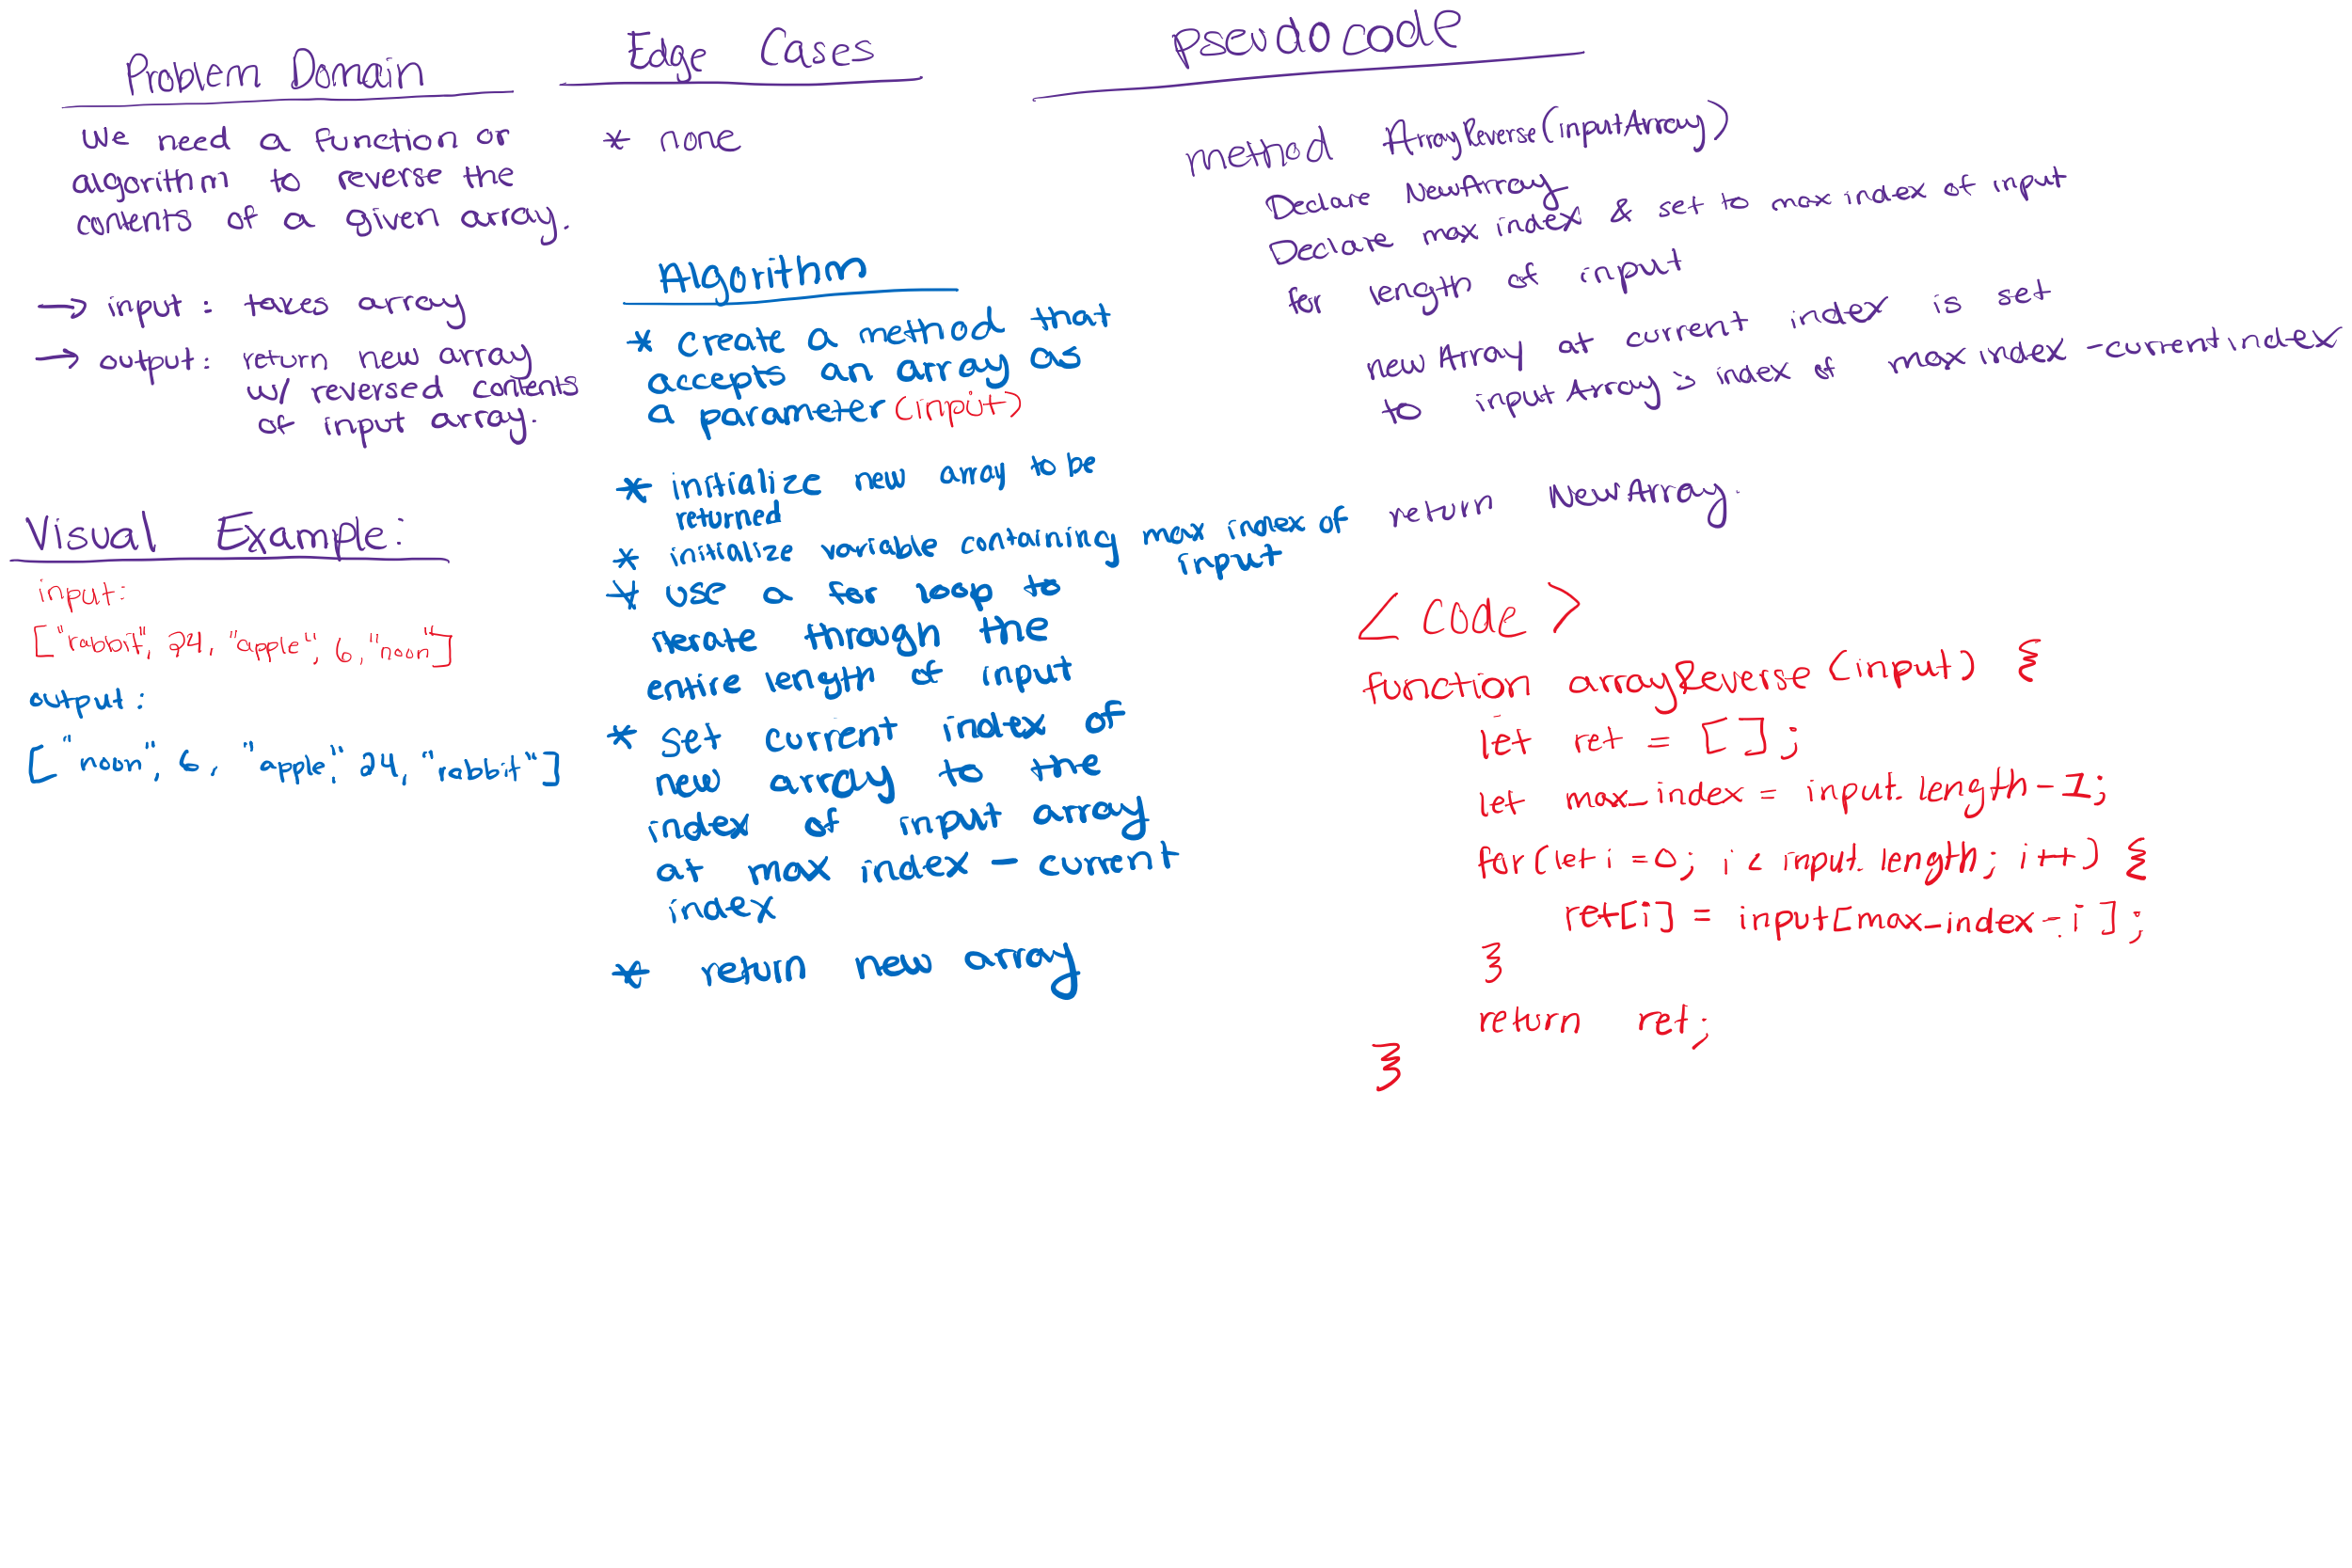 Problem Domain
We need a function or
algorithm to reverse the
contents of a given array.
→ input: takes array
→ output: return new array
w/ reversed contents
of input array.
Visual Example:
input:
["rabbit", 24, "apple", 6, "noon"]
output:
["noon", 6, "apple", 24, "rabbit"]
Edge Cases
* none
Algorithm
* create a method that
accepts an array as
a parameter (input)
* initialize new array to be
returned
* initialize variable containing max index of
input
* use a for loop to
iterate through the
entire length of input
* set current index of
new array to the
index of input array
at max index - current
index
* return new array
pseudocode
method ArrayReverse(inputArray)
Declare NewArray
Declare max index & set to max index of input
for length of input
new Array at current index is set
to inputArray's index of max index - current index
return NewArray.
<code>
function arrayReverse(input) {
let ret = [];
let max_index = input.length-1;
for(let i = 0; i < input.length; i++) {
ret[i] = input[max_index-i];
}
return ret;
}